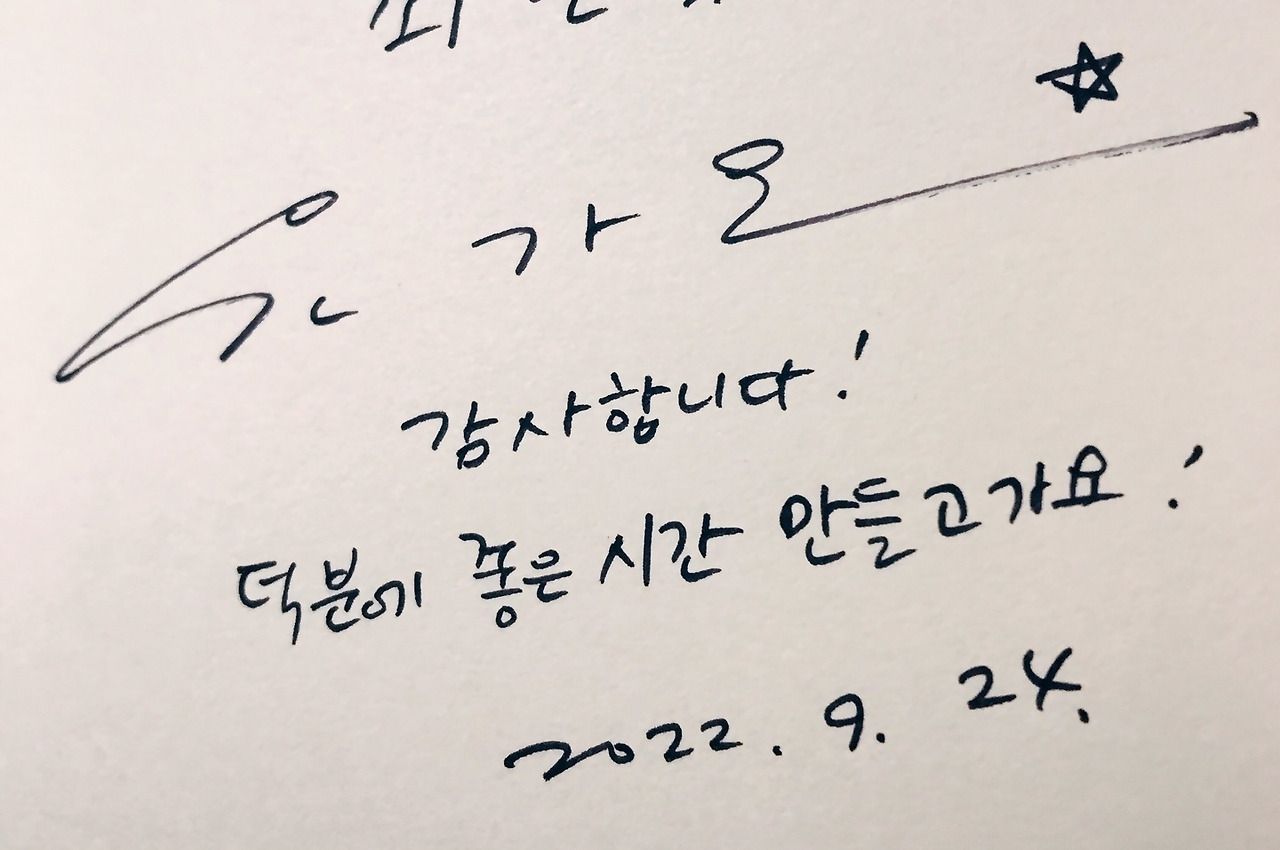 윤 가 은 ☆
감사합니다!
덕분에 좋은 시간 만들고가요!
2022. 9. 24.